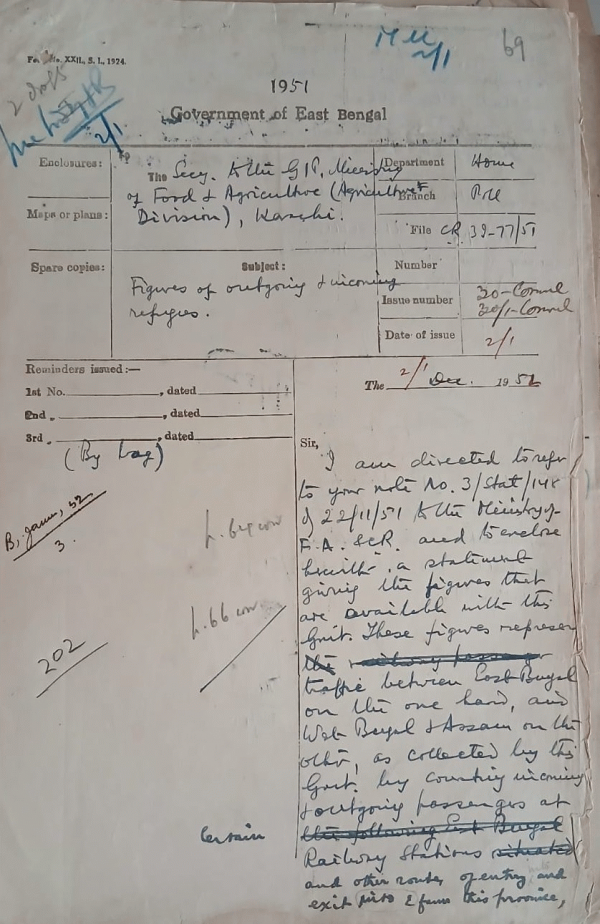 M U
2/1
69
XXII, S. I., 1924.
2/1
1951
Government of East Bengal
Enclosures:
Maps or plans:
Spare copies:
The Secy. to the G/P, Ministry
of Food & Agriculture (Agriculture
Division), Karachi.
Subject:
Figures of outgoing & incoming
refugees.
Department Home
Branch Poll
File CR 39-77/51
Number
Issue number 320-Council
320/1-Council
Date of issue 2/1
Reminders issued:—
1st No. , dated
2nd „ , dated
3rd „ , dated
(By bag)
The 2/1 Dec. 1952
B, Janu, 52
3.
202
Sir,
I am directed to refer
to your note No. 3/Stat/148
of 22/11/51 to the Ministry of
F.A. &CR. and to enclose
herewith a statement
giving the figures that
are available with this
Govt. These figures represen
the railway passenger
traffic between East Bengal
on the one hand, and
West Bengal & Assam on the
other, as collected by this
Govt. by counting incoming
& outgoing passengers at
certain
the following East Bengal
Railway Stations situated
and other routes of entry and
exit into & from this province,